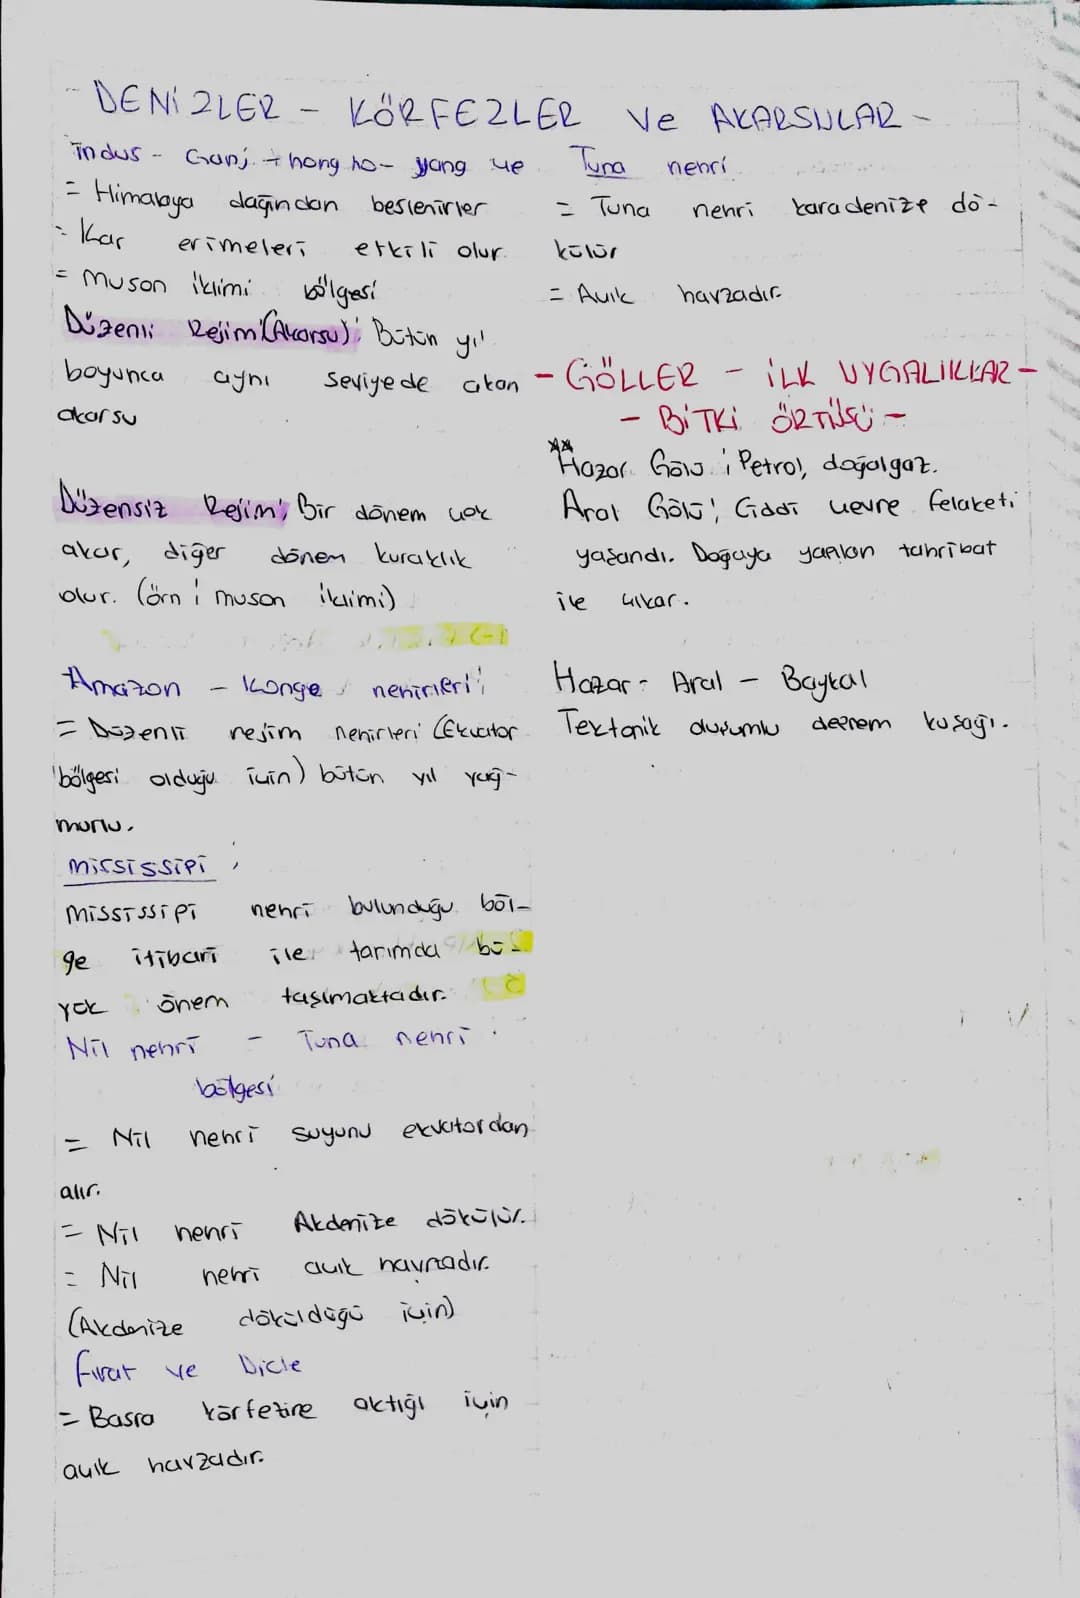 - DENİZLER - KÖRFEZLER ve AKARSULAR -
İndus - Ganj - hong ho - yang çe
= Himalaya dağından beslenirler
= Kar erimeleri etkili olur.
= Muson iklimi bölgesi
Düzenli Rejim (Akarsu); Bütün yıl
boyunca aynı seviyede akan
akarsu
Düzensiz Rejim; Bir dönem çok
akar, diğer dönem kuraklık
olur. (örn; muson iklimi)
Amazon - Kongo nehirleri;
= Düzenli rejim nehirleri (Ekvator
bölgesi olduğu için) bütün yıl yağ-
murlu.
Mississipi;
Mississipi nehri bulunduğu böl-
ge itibari ile tarımda bü-
yük önem taşımaktadır.
Nil nehri - Tuna nehri
bölgesi
= Nil nehri suyunu ekvatordan
alır.
= Nil nehri Akdenize dökülür.
= Nil nehri açık havzadır.
(Akdenize döküldüğü için)
Fırat ve Dicle
= Basra körfezine aktığı için
açık havzadır.
Tuna nehri
= Tuna nehri karadenize dö-
külür
= Açık havzadır.
- GÖLLER - İLK UYGALIKLAR -
- BİTKİ ÖRTÜSÜ -
** Hazar Gölü; Petrol, doğalgaz.
Aral Gölü; Ciddi çevre felaketi
yaşandı. Doğaya yapılan tahribat
ile çıkar.
Hazar - Aral - Baykal
Tektonik oluşumlu deprem kuşağı.